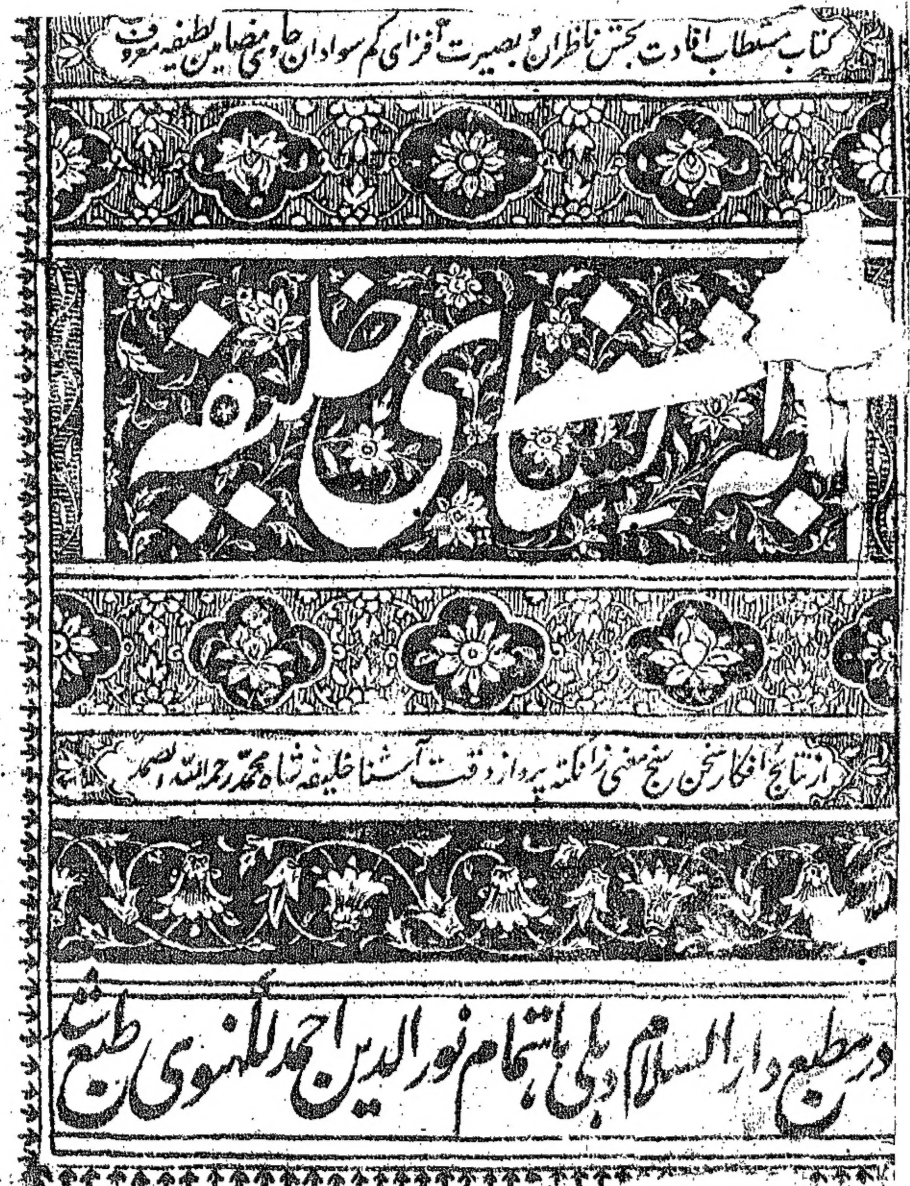 کتاب مستطاب افادت بخش ناظران و بصیرت افزای کم سوادان حاوی مضامین لطیفه معروف
به انشای خلیفه
از نتائج افکار سخن سنج معنی زا نکته پرداز دقت آشنا خلیفه شاه محمد رحمه الله الصمد
در مطبع دار السلام دہلی باہتمام نور الدین احمد لکھنوی طبع شد